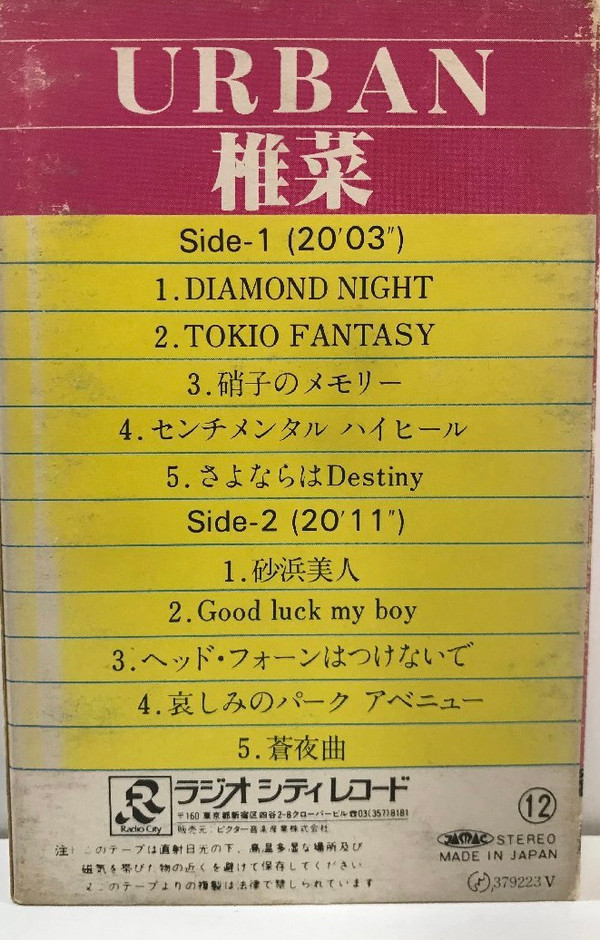 URBAN
椎菜
Side-1 (20′03″)
1.DIAMOND NIGHT
2.TOKIO FANTASY
3.硝子のメモリー
4.センチメンタル ハイヒール
5.さよならはDestiny
Side-2 (20′11″)
1.砂浜美人
2.Good luck my boy
3.ヘッド・フォーンはつけないで
4.哀しみのパーク アベニュー
5.蒼夜曲
ラジオ シティ レコード
Radio City
〒160 東京都新宿区四谷2-8クローバービル☎03(357)8181
販売元:ビクター音楽産業株式会社
12
注)このテープは直射日光の下、高温多湿な場所及び
磁気を帯びた物の近くを避けて保存してください
又このテープよりの複製は法律で禁じられています
JASRAC STEREO
MADE IN JAPAN
379223V